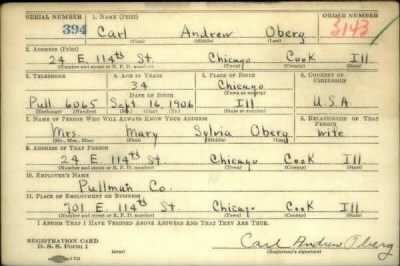 SERIAL NUMBER 1. NAME (Print) ORDER NUMBER
394 Carl Andrew Oberg 3143
(First) (Middle) (Last)
2. ADDRESS (Print)
24 E. 114th St. Chicago Cook Ill
(Number and street or R. F. D. number) (Town) (County) (State)
3. TELEPHONE 4. AGE IN YEARS 5. PLACE OF BIRTH 6. COUNTRY OF CITIZENSHIP
34 Chicago
DATE OF BIRTH (Town or county)
Pull. 6065 Sept. 16, 1906 Ill U.S.A.
(Exchange) (Number) (Mo.) (Day) (Yr.) (State or country)
7. NAME OF PERSON WHO WILL ALWAYS KNOW YOUR ADDRESS 8. RELATIONSHIP OF THAT PERSON
Mrs. Mary Sylvia Oberg wife
(Mr., Mrs., Miss) (First) (Middle) (Last)
9. ADDRESS OF THAT PERSON
24 E. 114th St. Chicago Cook Ill
(Number and street or R. F. D. number) (Town) (County) (State)
10. EMPLOYER'S NAME
Pullman Co.
11. PLACE OF EMPLOYMENT OR BUSINESS
701 E. 114th St Chicago Cook Ill
(Number and street or R. F. D. number) (Town) (County) (State)
I AFFIRM THAT I HAVE VERIFIED ABOVE ANSWERS AND THAT THEY ARE TRUE.
REGISTRATION CARD
D. S. S. Form 1 (over) Carl Andrew Oberg
(Registrant's signature)